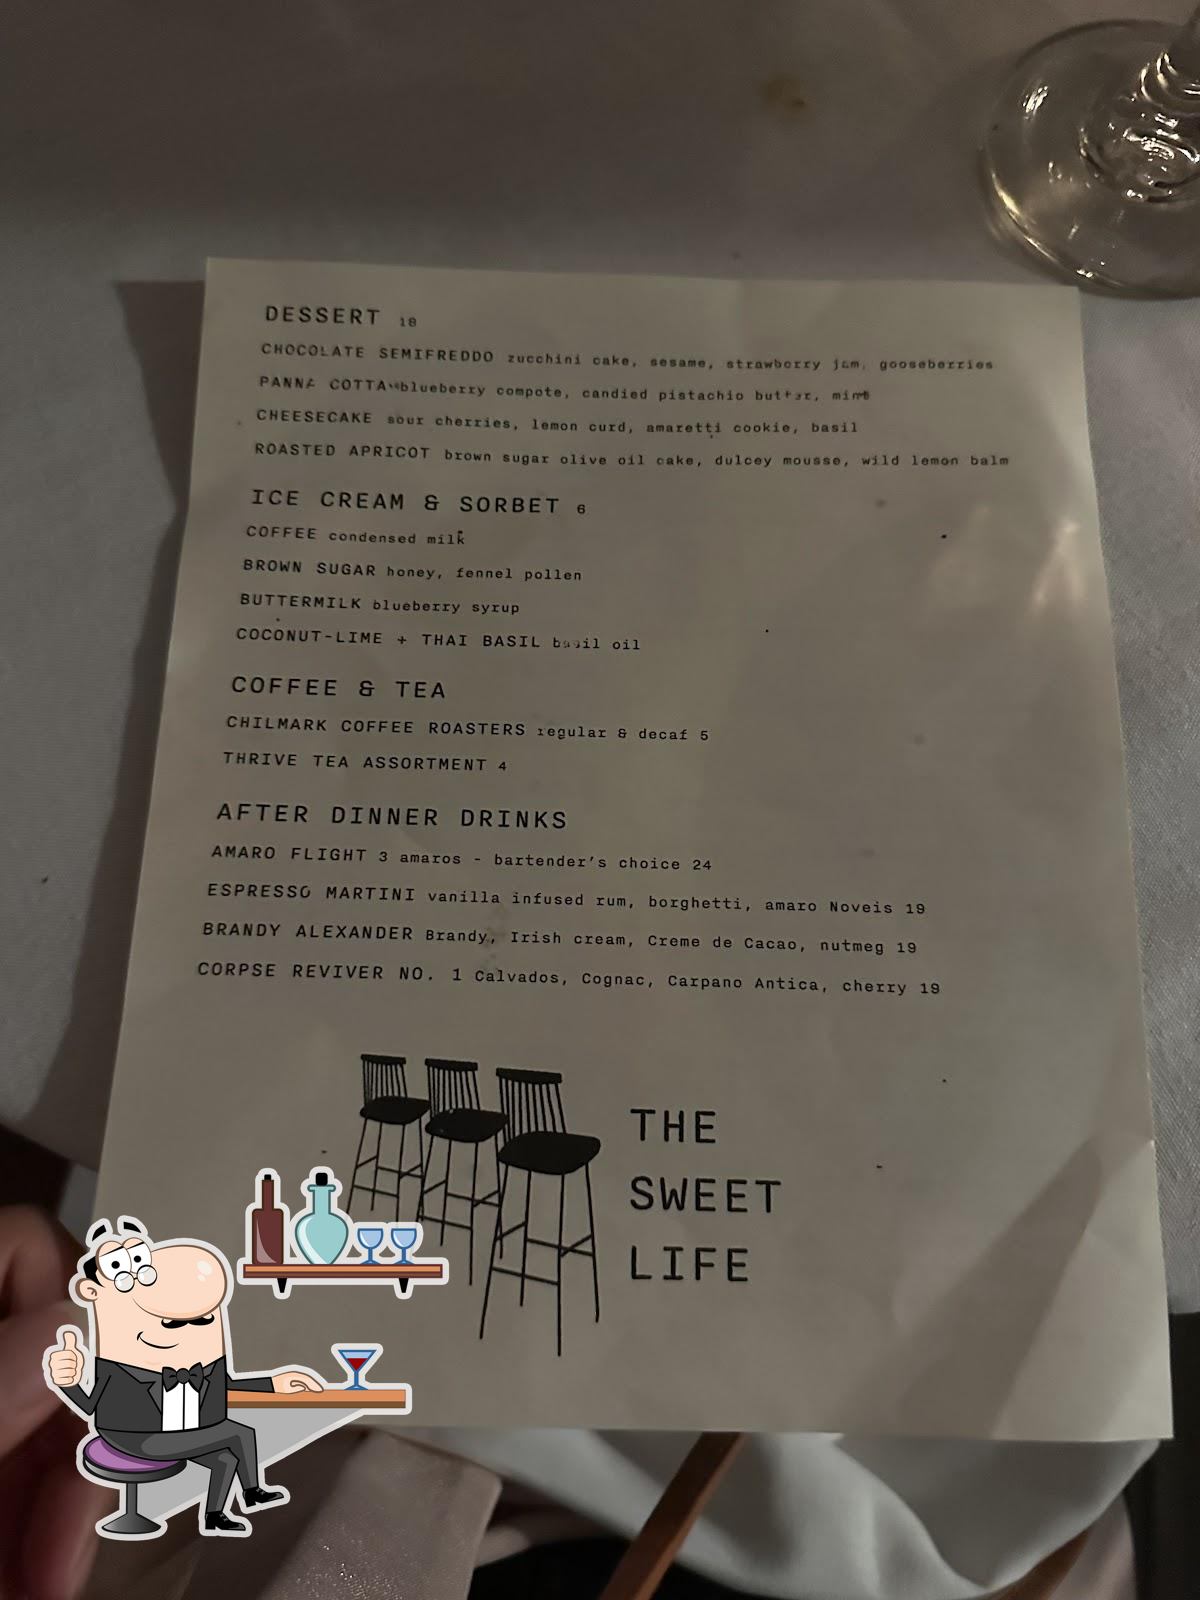 DESSERT 18
CHOCOLATE SEMIFREDDO zucchini cake, sesame, strawberry jam, gooseberries
PANNA COTTA blueberry compote, candied pistachio butter, mint
CHEESECAKE sour cherries, lemon curd, amaretti cookie, basil
ROASTED APRICOT brown sugar olive oil cake, dulcey mousse, wild lemon balm
ICE CREAM & SORBET 6
COFFEE condensed milk
BROWN SUGAR honey, fennel pollen
BUTTERMILK blueberry syrup
COCONUT-LIME + THAI BASIL basil oil
COFFEE & TEA
CHILMARK COFFEE ROASTERS regular & decaf 5
THRIVE TEA ASSORTMENT 4
AFTER DINNER DRINKS
AMARO FLIGHT 3 amaros - bartender's choice 24
ESPRESSO MARTINI vanilla infused rum, borghetti, amaro Noveis 19
BRANDY ALEXANDER Brandy, Irish cream, Creme de Cacao, nutmeg 19
CORPSE REVIVER NO. 1 Calvados, Cognac, Carpano Antica, cherry 19
THE
SWEET
LIFE